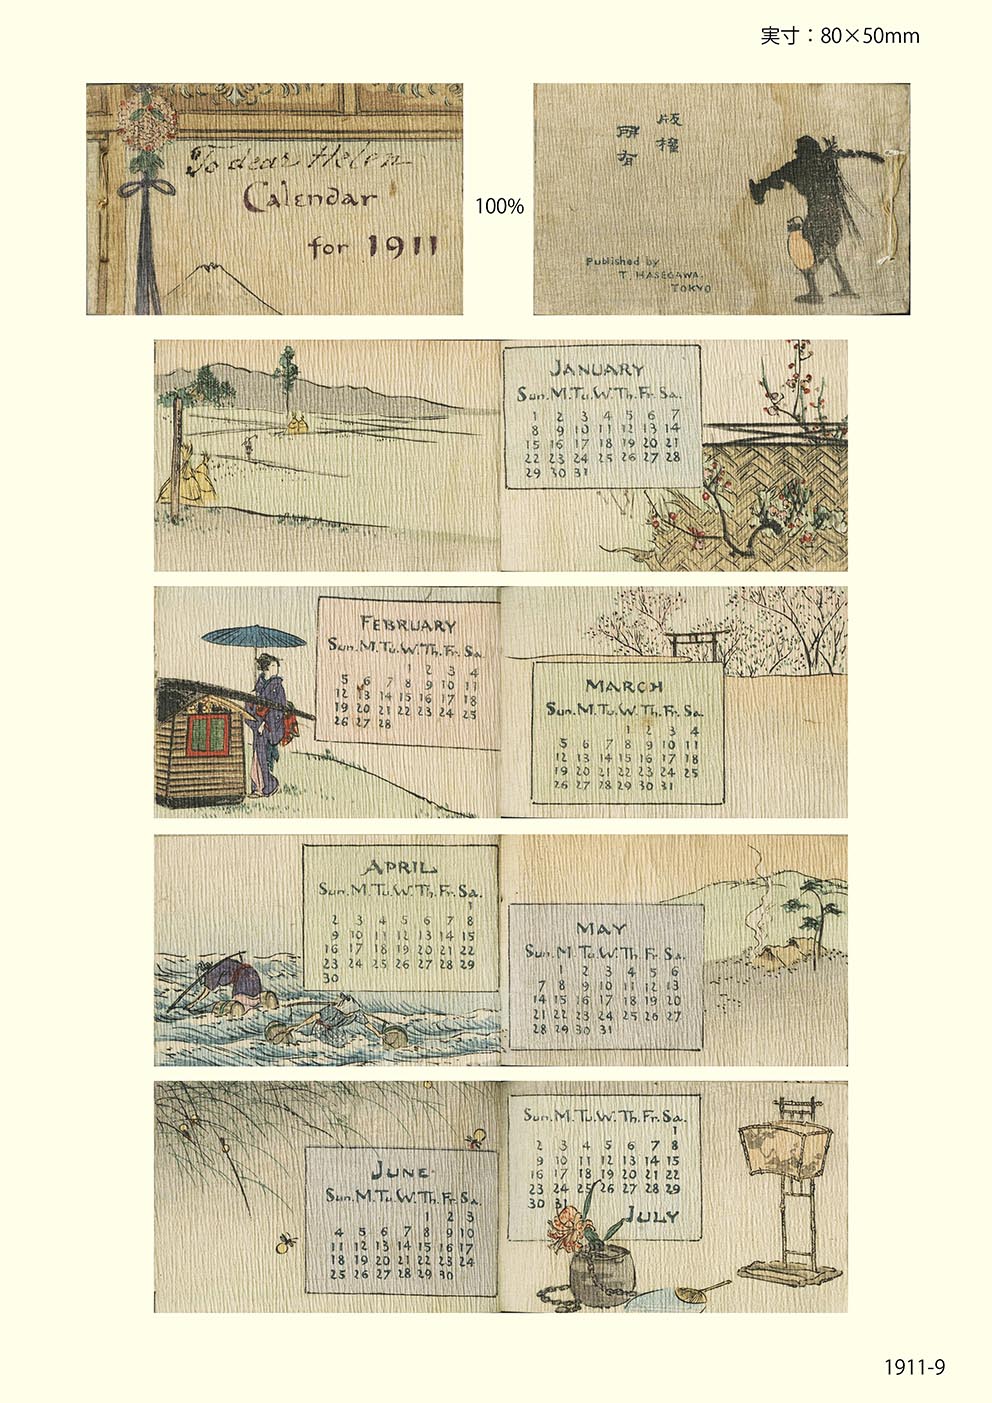 実寸：80×50mm
To dear Helen
Calendar
for 1911
100%
版權
所有
Published by
T. HASEGAWA.
TOKYO
JANUARY
Sun. M. Tu. W. Th. Fr. Sa.
1 2 3 4 5 6 7
8 9 10 11 12 13 14
15 16 17 18 19 20 21
22 23 24 25 26 27 28
29 30 31
FEBRUARY
Sun. M. Tu. W. Th. Fr. Sa.
1 2 3 4
5 6 7 8 9 10 11
12 13 14 15 16 17 18
19 20 21 22 23 24 25
26 27 28
MARCH
Sun. M. Tu. W. Th. Fr. Sa.
1 2 3 4
5 6 7 8 9 10 11
12 13 14 15 16 17 18
19 20 21 22 23 24 25
26 27 28 29 30 31
APRIL
Sun. M. Tu. W. Th. Fr. Sa.
1
2 3 4 5 6 7 8
9 10 11 12 13 14 15
16 17 18 19 20 21 22
23 24 25 26 27 28 29
30
MAY
Sun. M. Tu. W. Th. Fr. Sa.
1 2 3 4 5 6
7 8 9 10 11 12 13
14 15 16 17 18 19 20
21 22 23 24 25 26 27
28 29 30 31
JUNE
Sun. M. Tu. W. Th. Fr. Sa.
1 2 3
4 5 6 7 8 9 10
11 12 13 14 15 16 17
18 19 20 21 22 23 24
25 26 27 28 29 30
Sun. M. Tu. W. Th. Fr. Sa.
1
2 3 4 5 6 7 8
9 10 11 12 13 14 15
16 17 18 19 20 21 22
23 24 25 26 27 28 29
30 31
JULY
1911-9